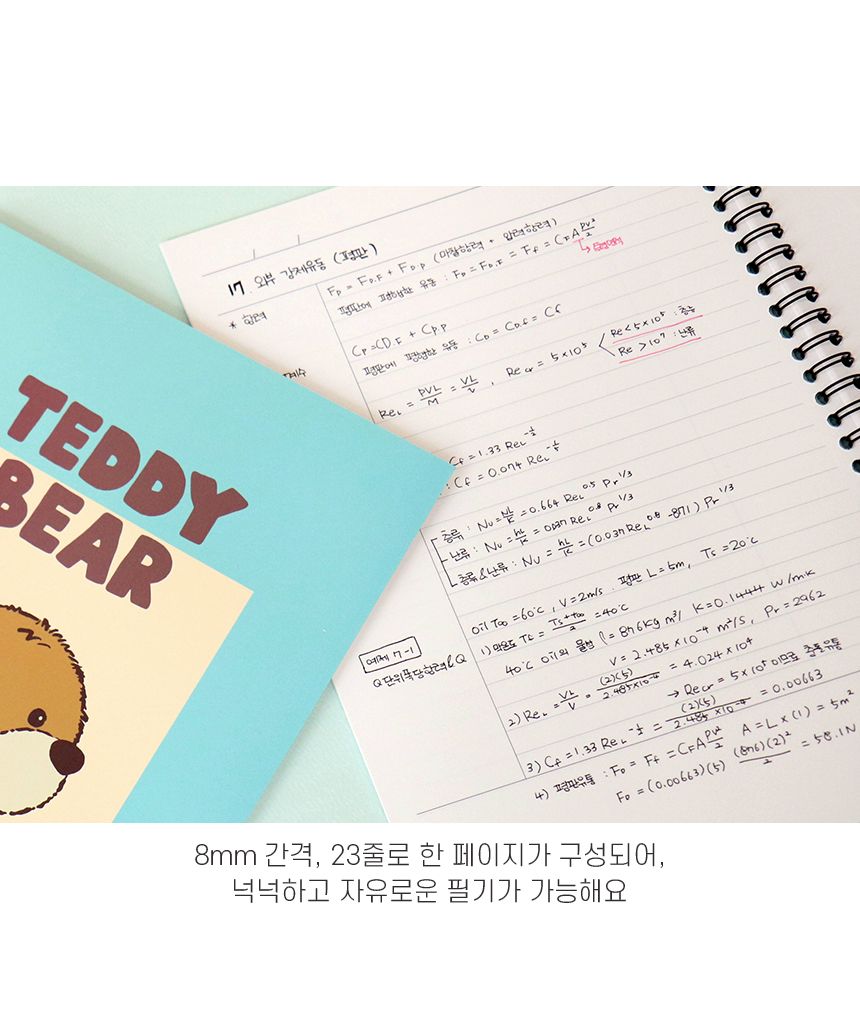 TEDDY
BEAR
17. 외부 강제유동 (평판)
* 항력
F_D = F_D.F + F_D.P (마찰항력 + 압력항력)
평판에 평행한 유동 : F_D = F_D.F = F_f = C_F A ρV²/2
C_D = C_D.F + C_D.P
평판에 평행한 유동 : C_D = C_D.F = C_f
Re_L = ρVL/M = VL/ν , Re cr = 5×10⁵
Re < 5×10⁵ : 층류
Re > 10⁷ : 난류
C_f = 1.33 Re_L^-1/2
: C_f = 0.074 Re_L
층류 : Nu = hL/K = 0.664 Re_L^0.5 Pr^1/3
난류 : Nu = hL/K = 0.037 Re_L^0.8 Pr^1/3
층류&난류 : Nu = hL/K = (0.037 Re_L^0.8 - 871) Pr^1/3
예제 7-1
Q 단위폭당항력 & Q
Oil T∞ = 60℃, V = 2m/s. 평판 L = 5m, Ts = 20℃
1) 막온도 Tf = Ts + T∞/2 = 40℃
40℃ Oil의 물성 ρ = 876kg/m³ K = 0.1444 W/m·K
ν = 2.485×10⁻⁴ m²/s, Pr = 2962
2) Re_L = VL/ν = (2)(5)/2.485×10⁻⁴ = 4.024×10⁴
→ Re cr = 5×10⁵ 이므로 층류유동
3) C_f = 1.33 Re_L^-1/2 = (2)(5)/2.485×10⁻⁴ = 0.00663
4) 평판유동 : F_D = F_f = C_F A ρV²/2 A = L×(1) = 5m²
F_D = (0.00663)(5) (876)(2)²/2 = 58.1N
8mm 간격, 23줄로 한 페이지가 구성되어,
넉넉하고 자유로운 필기가 가능해요